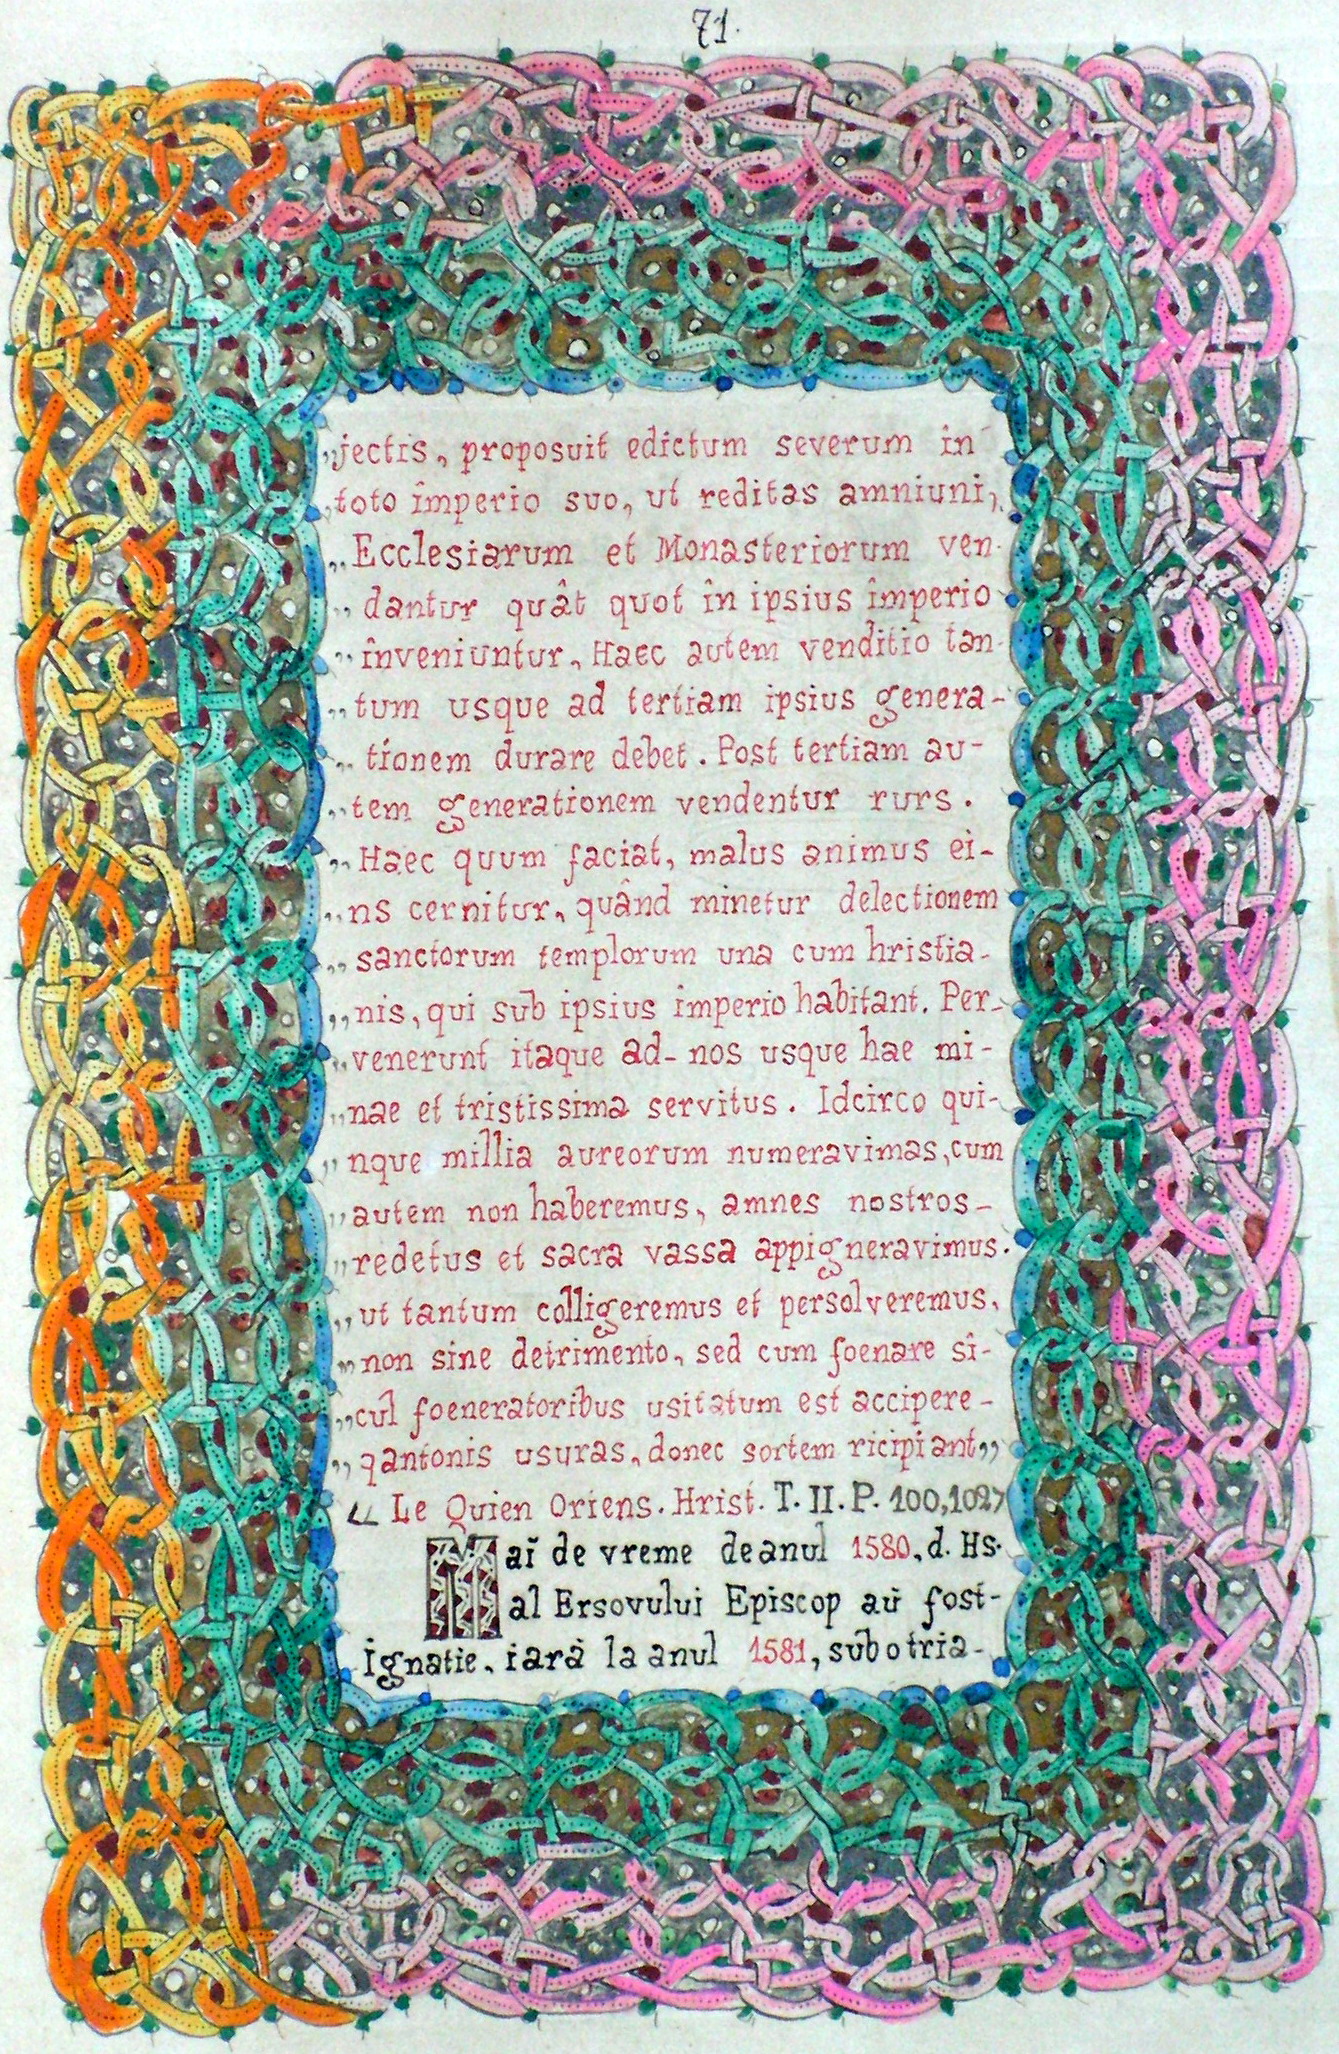 71.
„jectis, proposuit edictum severum în
„toto împerio suo, ut reditas amniuni,
„Ecclesiarum et Monasteriorum ven-
„dantur quât quot în ipsius împerio
„înveniuntur, Haec autem venditio tan-
„tum usque ad tertiam ipsius genera-
„tionem durare debet. Post tertiam au-
„tem generationem vendentur rurs.
„Haec quum faciat, malus animus ei-
„ns cernitur, quând minetur delectionem
„sanctorum templorum una cum hristia-
„nis, qui sub ipsius împerio habitant. Per-
„venerunt itaque ad- nos usque hae mi-
„nae et tristissima servitus. Idcirco qui-
„nque millia aureorum numeravimas, cum
„autem non haberemus, amnes nostros-
„redetus et sacra vassa appigneravimus.
„ut tantum colligeremus et persolveremus,
„non sine detrimento, sed cum foenare si-
„cul foeneratoribus usitatum est accipere-
„qantonis usuras, donec sortem ricipiant„
„Le Quien Oriens. Hrist. T. II. P. 100,102,
Maĭ de vreme deanul 1580, d. Hs.
al Ersovului Episcop aŭ fost-
ignatie, iară la anul 1581, subotria-